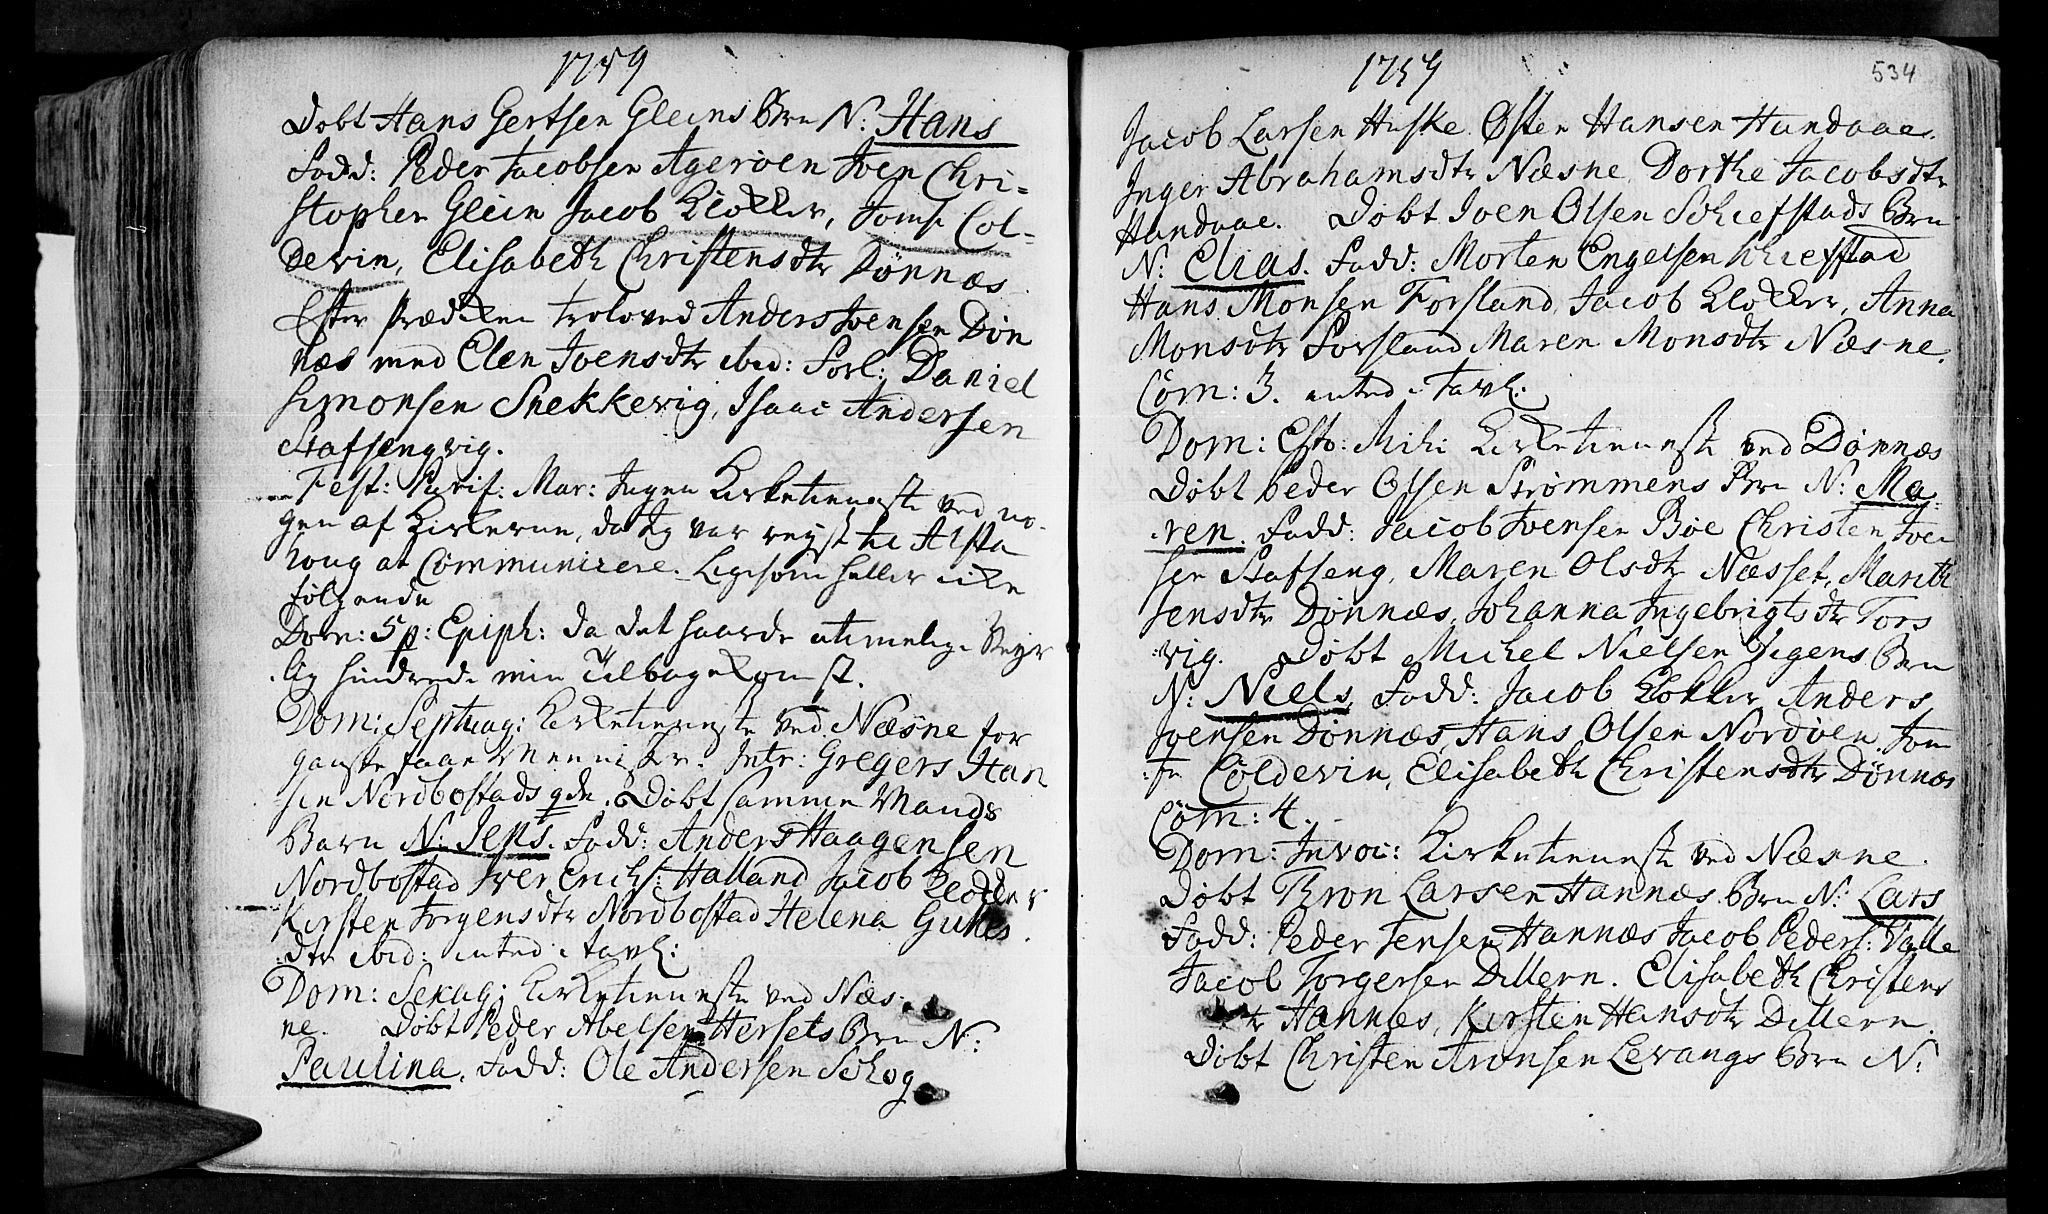 1759
Døbt Hans Gertsen Gleins Brn N: Hans
Fadd: Peder Jacobsen Agerøen Iven Chri-
stopher Glein Jacob Klokker, Jomfr Col-
devin, Elisabeth Christensdtr Dønnæs
Efter Prædiken troloved Anders Ivensen Døn
næs med Elen Ivensdtr ibid: Forl: Daniel
Simonsen Snekkevig, Isaac Andersen
Stafsengvig.
Fest: Purif: Mar: Ingen Kirketieneste ved no-
gen af Kirkerne, da ieg var reyst til Alsta
houg at Communicere. Ligesom heller ikke
følgende
Dom: 5 p: Epiph: da det haarde utimelige Veyr
lig hindrede min Tilbagekomst.
Dom: Septuag: Kirketieneste ved Næsne for
ganske faae Mennisker. Intr: Gregers Han
sen Nordbostads qdn. Døbt samme Mands
Barn N: Jens. Fadd: Anders Haagensen
Nordbostad Iver Erichs: Halland Jacob Klokker
Kirsten Jørgensdtr Nordbostad Helena Gunnes
dtr ibid: inted i Tavl:
Dom: Sexag: Kirketieneste ved Næs-
ne. Døbt Peder Abelsen Hersets Brn N:
Paulina, Fadd: Ole Andersen Schog
1759
534
Jacob Larsen Huske Østen Hansen Hundaae.
Inger Abrahamsdtr Næsne, Dorthe Jacobsdtr
Hundaae. Døbt Iven Olsen Schiefstads Brn
N: Elias. Fadd: Morten Engelsen Schiefstad
Hans Monsen Forsland, Jacob Klokker, Anna
Monsdtr Forsland Maren Monsdtr Næsne.
Com: 3. inted i Tavl:
Dom: Esto: Mihi Kirketieneste ved Dønnæs
Døbt Peder Olsen Strømmens Brn N: Ma
ren. Fadd: Jacob Ivensen Bøe Christen Iven
sen Stafseng, Maren Olsdtr Næsset, Marith
Jensdtr Dønnæs, Johanna Ingebrigtsdtr Tors
vig. Døbt Michel Nielsen Tegens Brn
N: Niels, Fadd: Jacob Klokker Anders
Ivensen Dønnæs, Hans Olsen Nordøen, Jom
fr Coldevin, Elisabeth Christensdtr Dønnæs
Com: 4.
Dom: Invoc: Kirketieneste ved Næsne.
Døbt Thron Larsen Hannæs Brn N: Lars
Fadd: Peder Jensen Hannæs Jacob Peders: Valle
Jacob Torgersen Dillern. Elisabeth Christens
dtr Hannæs, Kirsten Hansdtr Dillern.
Døbt Christen Aronsen Levangs Brn N: